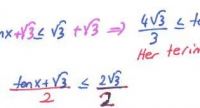 nx+√3 ≤ √3 + √3 ⇒ 4√3/3 ≤ t
Her terim
tanx+√3/2 ≤ 2√3/2